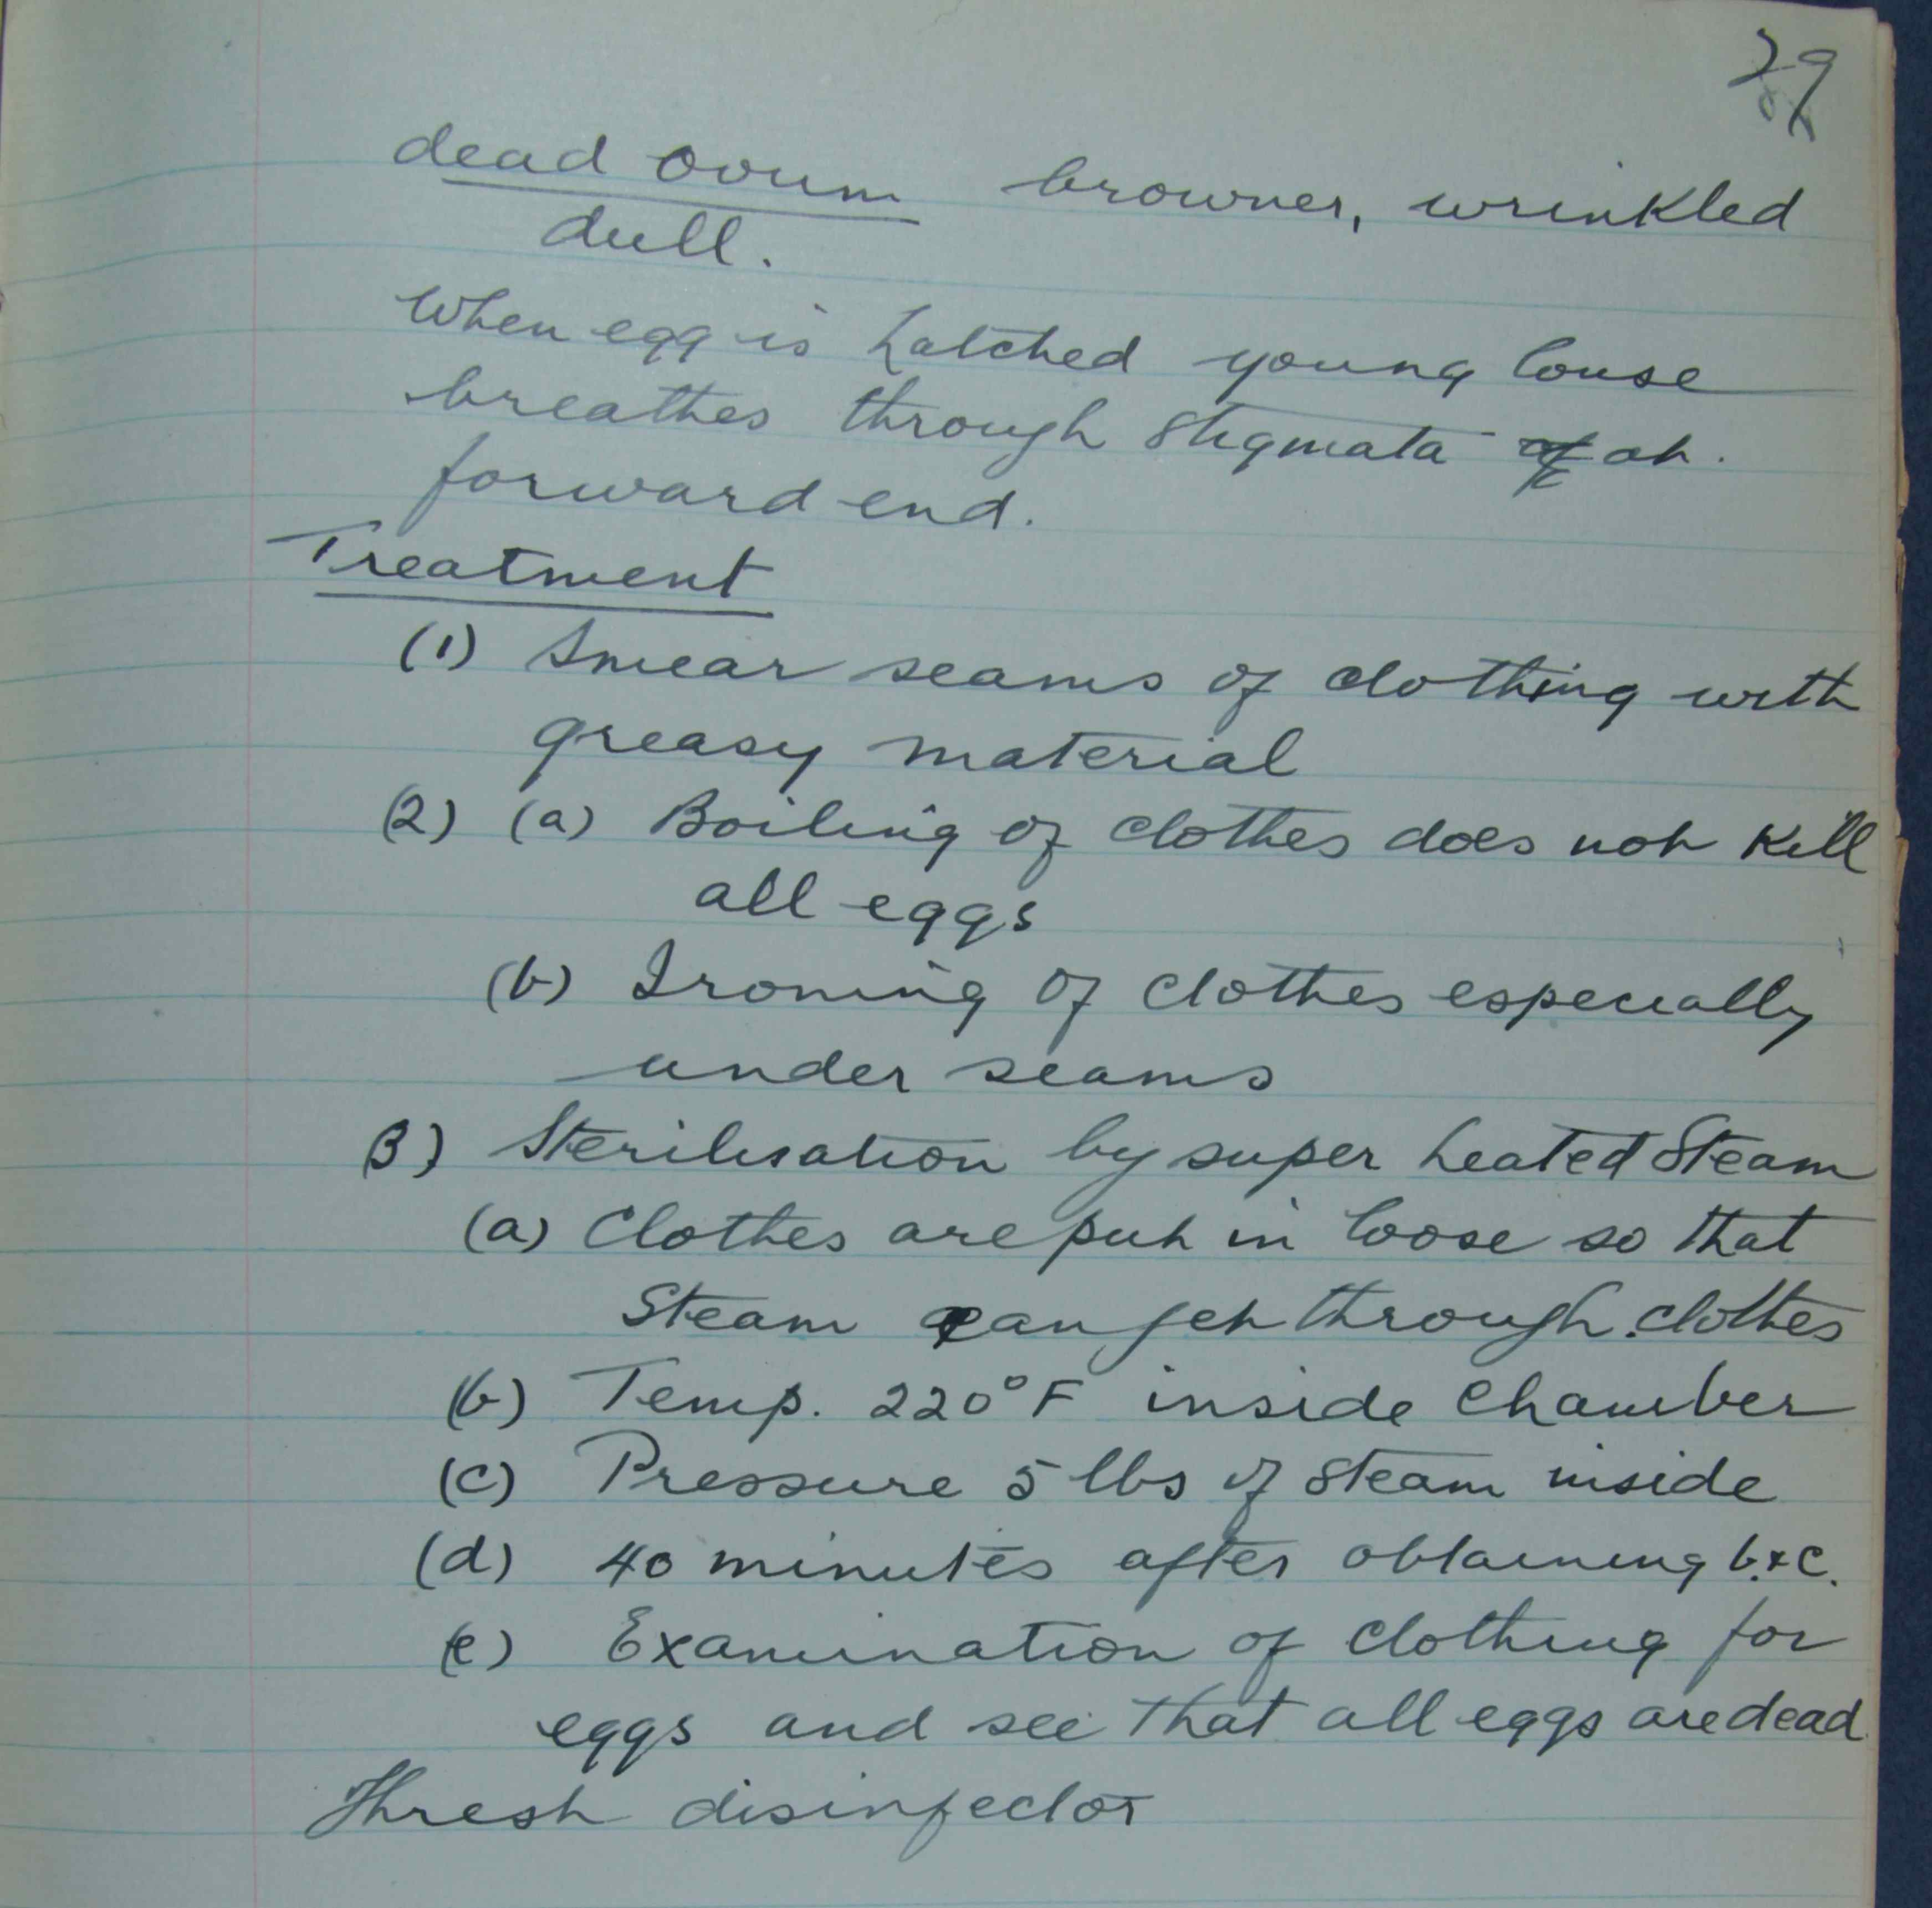 29
dead ovum browner, wrinkled
dull.
When egg is hatched young louse
breathes through stigmata of at
forward end.
Treatment
(1) Smear seams of clothing with
greasy material
(2) (a) Boiling of clothes does not kill
all eggs
(b) Ironing of clothes especially
under seams
(3) Sterilisation by super heated Steam
(a) Clothes are put in loose so that
Steam can get through clothes
(b) Temp. 220°F inside chamber
(c) Pressure 5 lbs of steam inside
(d) 40 minutes after obtaining b.+c.
(e) Examination of clothing for
eggs and see that all eggs are dead
Thresh disinfector